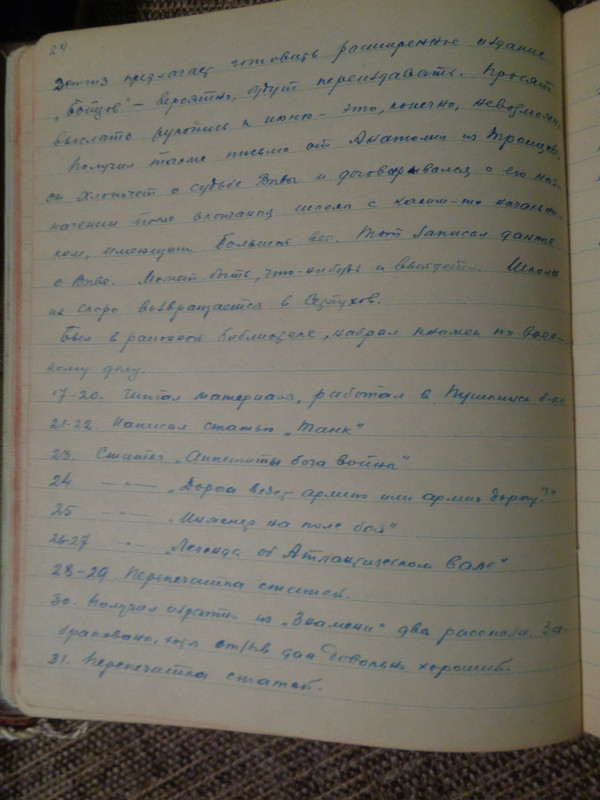 24
Детгиз предлагает готовить расширенное издание
„Бойцов" – вероятно, будут переиздавать. Просят
выслать рукопись к июню – это, конечно, невозможно.
Получил также письмо от Анатолия из Троицка.
он хлопочет о судьбе Вивы и договаривался о его наз-
начении после окончания школы с каким-то началь-
ком, имеющим большой вес. Тот записал данные
о Виве. Может быть, что-нибудь и выйдет. Школа
их скоро возвращается в Серпухов.
Был в районной библиотеке, набрал книжек по воен-
ному делу.
17-20. Читал материалы, работал в Пушкинск б-ке
21-22. Написал статью „Танк"
23. Статья „Аппетиты бога войны"
24 —"— „Дорога везет армию или армия дорогу?"
25 —"— „Инженер на поле боя"
26-27 —"— „Легенда об Атлантическом вале"
28-29 Перепечатка статей.
30. Получил обратно из „Знамени" два рассказа. За-
бракованы, хотя отзыв дан довольно хороший.
31. Перепечатка статей.